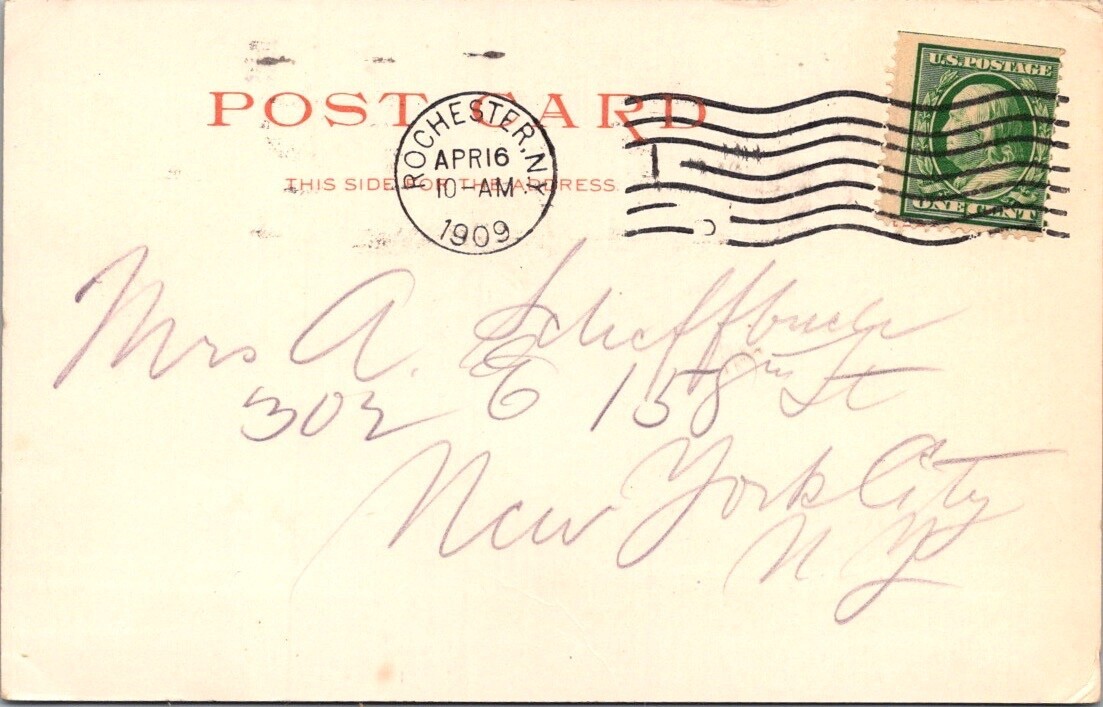 POST CARD
THIS SIDE FOR THE ADDRESS.
ROCHESTER, N.Y.
APR 16
10-AM
1909
U.S. POSTAGE
ONE CENT
Mrs A.
302 E 158 St
New York City
N. Y.